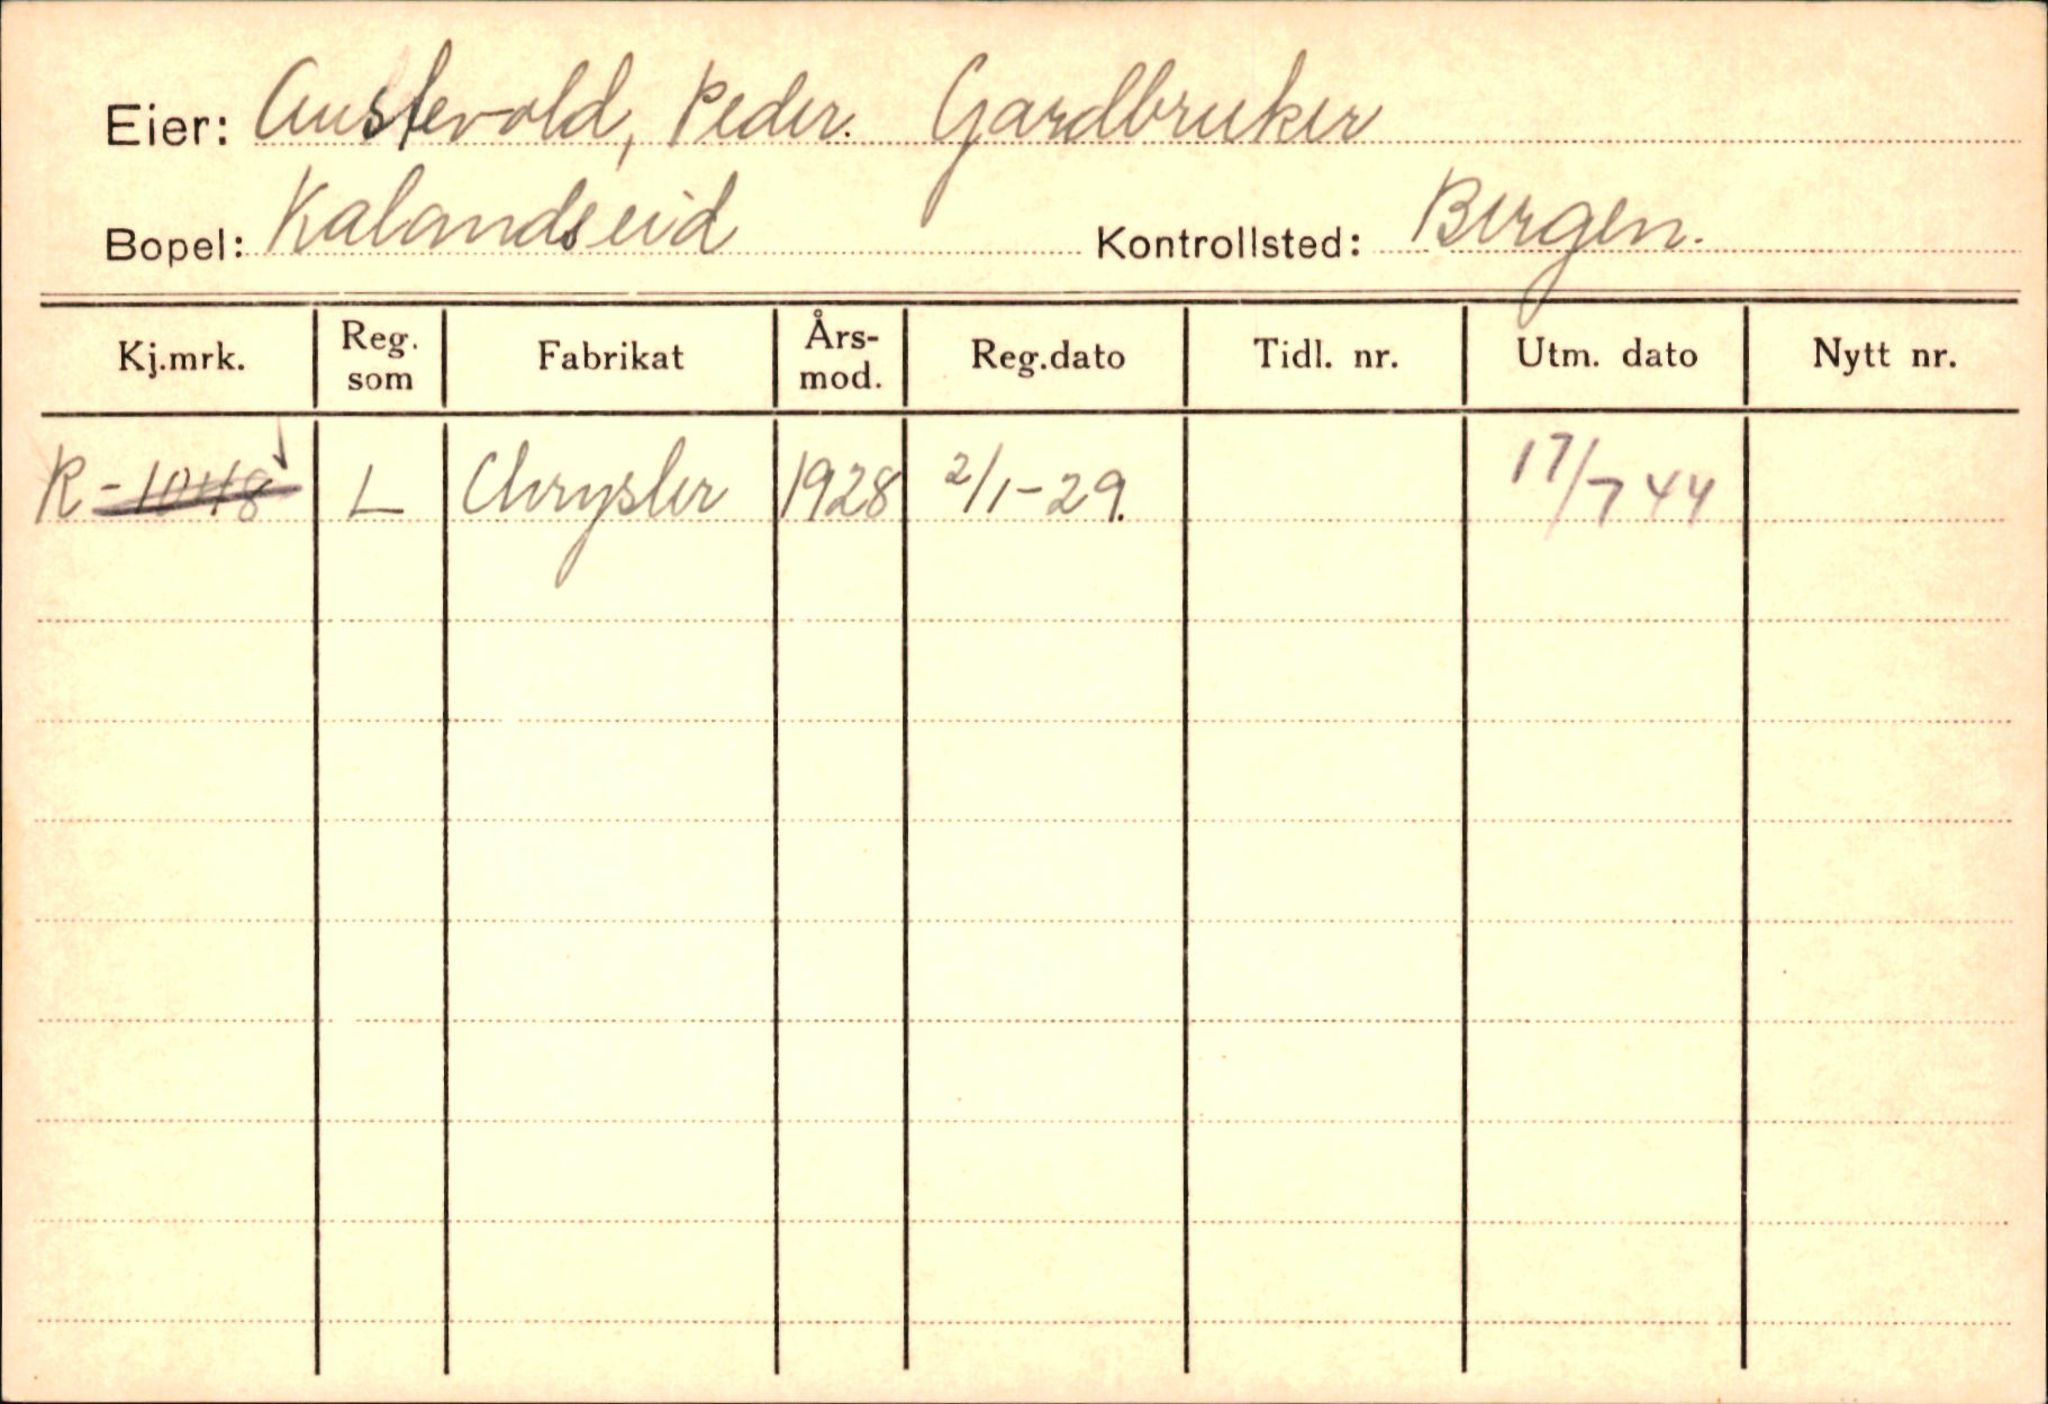 Eier: Austevold, Peder. Gardbruker
Bopel: Kalandseid Kontrollsted: Bergen.
Kj.mrk. Reg. som Fabrikat Års-mod. Reg.dato Tidl. nr. Utm. dato Nytt nr.
R-1048 L Chrysler 1928 2/1-29. 17/7 44